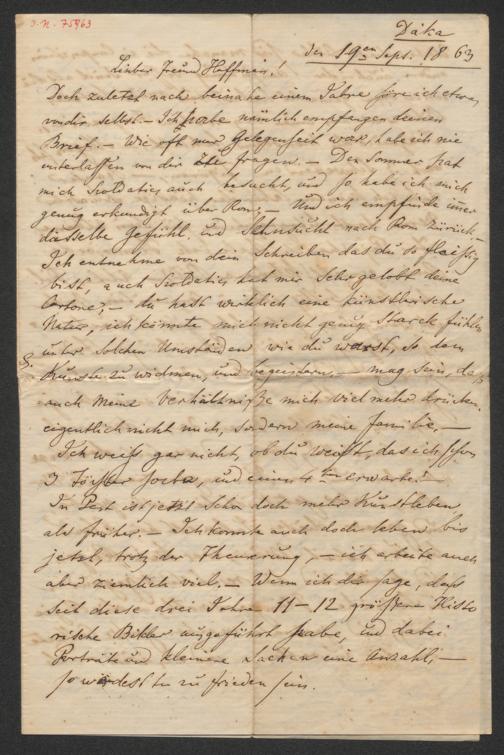 J. N. 75963
Dáka
den 19en Sept. 1863
Lieber Freund Hoffman!
Doch zuletzt nach beinahe einem Jahre höre ich etwas
von dir selbst. – Ich habe nämlich empfangen deinen
Brief. – Wie oft nur Gelegenheit war, habe ich nie
unterlassen von dir zu fragen. – Den Sommer hat
mich Szoldatics auch besucht, und so habe ich mich
genug erkundigt über Rom, – Und ich empfinde imer
dasselbe Gefühl und Sehnsucht nach Rom zurück. –
Ich entnehme von dein Schreiben das du so fleißig
bist, auch Szoldatics hat mir sehr gelobt deine
Cartone, – du hast wirklich eine künstlerische
Natur, ich könnte mich nicht genug starck fühlen
unter solchen Umständen wie du warst, so dem
Kunste zu widmen, und begeistern, – mag sein, daß
auch meine Verhältniße mich viel mehr drücken
eigentlich nicht mich, sondern meine Familie. –
Ich weiß gar nicht, ob du weißt, das ich schon
3 Töchter habe, und einen 4ten erwarte! –
In Pest ist jetzt schon doch mehr Kunstleben
als früher. – Ich konnte auch doch leben bis
jetzt, trotz der Theuerung, – ich arbeite auch
aber ziemlich viel. – Wenn ich dir sage, daß
seit diese drei Jahre 11–12 größere Histo
rische Bilder ausgeführt habe, und dabei
Porträte und kleinere Sachen eine Anzahl, –
so würdest du zufrieden sein.